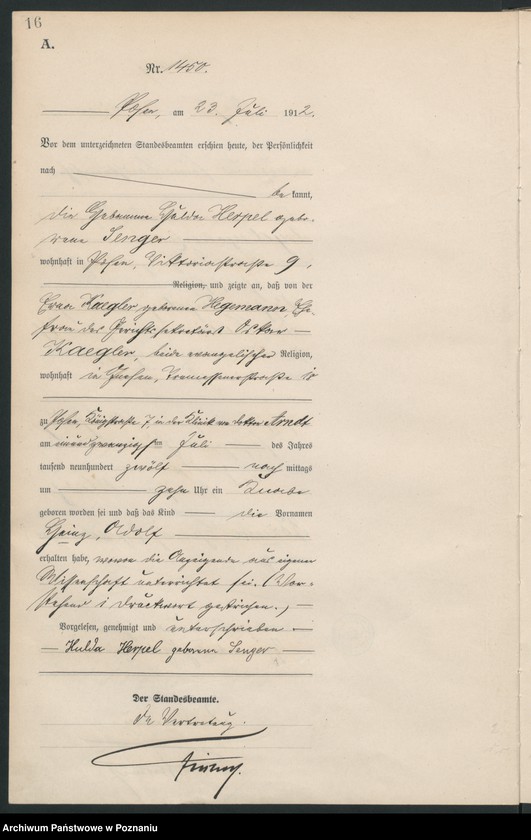 16
A.
Nr. 1450.
Posen, am 23. Juli 1912.
Vor dem unterzeichneten Standesbeamten erschien heute, der Persönlichkeit
nach
be kannt,
die Hebamme Hulda Herpel gebo-
rene Senger
wohnhaft in Posen, Viktoriastraße 9,
Religion, und zeigte an, daß von der
Kaegler, geborenen Hegemann, Ehe-
frau des Gerichtssekretärs Oskar
Kaegler, beide evangelischer Religion,
wohnhaft in Gnesen, Tremessenerstraße 10
zu Posen, Königstraße 7 in der Klinik von Doktor Arndt
am einundzwanzigsten Juli des Jahres
tausend neunhundert zwölf nach mittags
um zehn Uhr ein Knabe
geboren worden sei und daß das Kind die Vornamen
Heinz, Adolf
erhalten habe, wovon die Anzeigende aus eigener
Wissenschaft unterrichtet sei. (Vor-
stehend 1 Druckwort gestrichen.)
Vorgelesen, genehmigt und unterschrieben
Hulda Herpel geborene Senger
Der Standesbeamte.
In Vertretung.
Archiwum Państwowe w Poznaniu